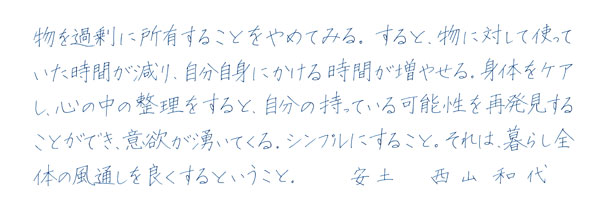 物を過剰に所有することをやめてみる。すると、物に対して使って
いた時間が減り、自分自身にかける時間が増やせる。身体をケア
し、心の中の整理をすると、自分の持っている可能性を再発見する
ことができ、意欲が湧いてくる。シンプルにすること。それは、暮らし全
体の風通しを良くするということ。 安土 西山和代